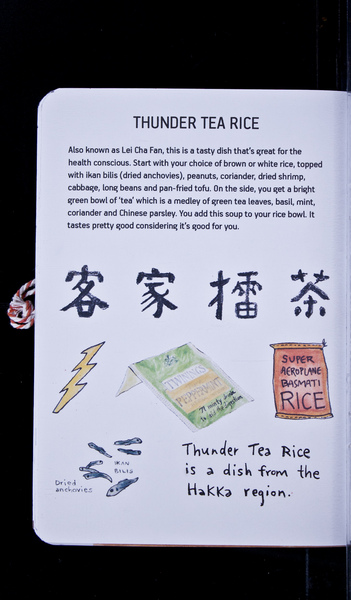 THUNDER TEA RICE
Also known as Lei Cha Fan, this is a tasty dish that's great for the
health conscious. Start with your choice of brown or white rice, topped
with ikan bilis (dried anchovies), peanuts, coriander, dried shrimp,
cabbage, long beans and pan-fried tofu. On the side, you get a bright
green bowl of 'tea' which is a medley of green tea leaves, basil, mint,
coriander and Chinese parsley. You add this soup to your rice bowl. It
tastes pretty good considering it's good for you.
客家擂茶
TWININGS
PEPPERMINT
A minty drink
to aid the digestion
SUPER
AEROPLANE
BASMATI
RICE
IKAN
BILIS
Dried
anchovies
Thunder Tea Rice
is a dish from the
Hakka region.